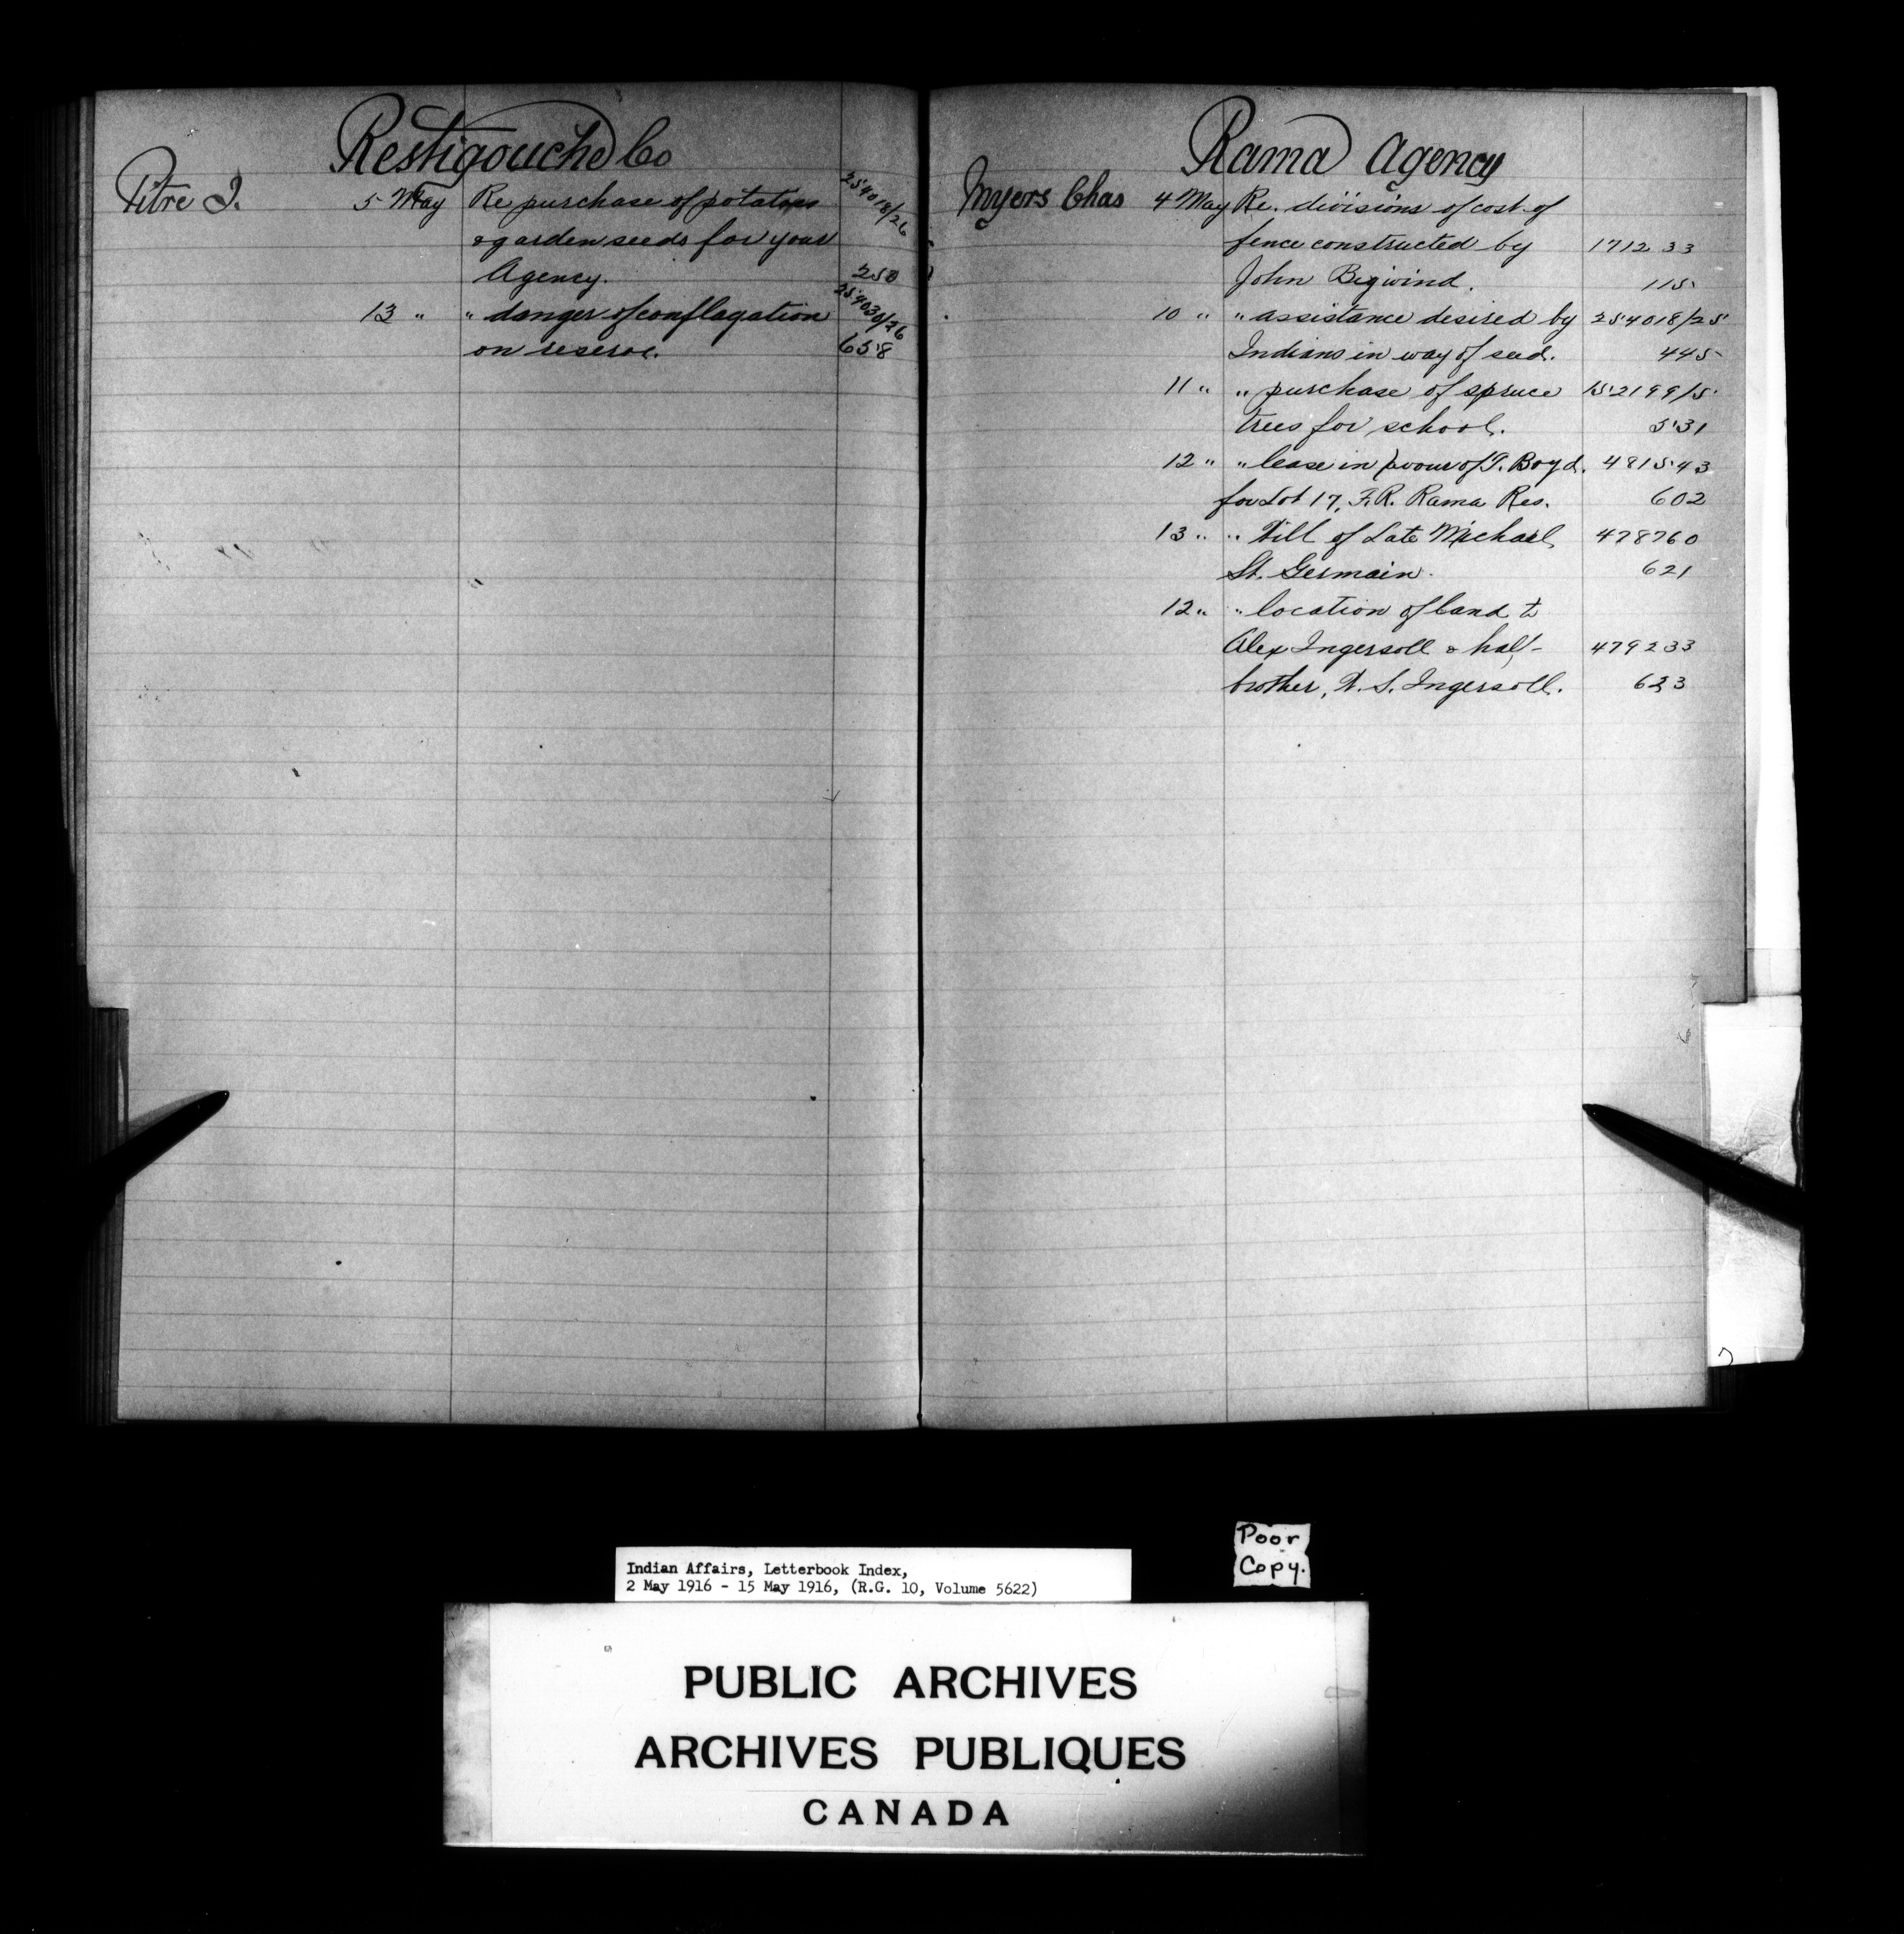 Restigouche Co
Pitre J. 5 May Re purchase of potatoes 254018/26
& garden seeds for your
Agency. 250
13 " " danger of conflagation 254030/26
on reserve. 658
Rama Agency
Myers Chas 4 May Re. divisions of cost of
fence constructed by 171233
John Bigwind. 115
10 " " assistance desired by 254018/25
Indians in way of seed. 445
11 " " purchase of spruce 152199/5
trees for school. 531
12 " " lease in favour of T. Boyd. 481543
for Lot 17, F.R. Rama Res. 602
13 " " Will of Late Michael 478760
St. Germain. 621
12 " " location of land to
Alex Ingersoll & half- 479233
brother, W. S. Ingersoll. 623
Poor
Copy.
Indian Affairs, Letterbook Index,
2 May 1916 - 15 May 1916, (R.G. 10, Volume 5622)
PUBLIC ARCHIVES
ARCHIVES PUBLIQUES
CANADA